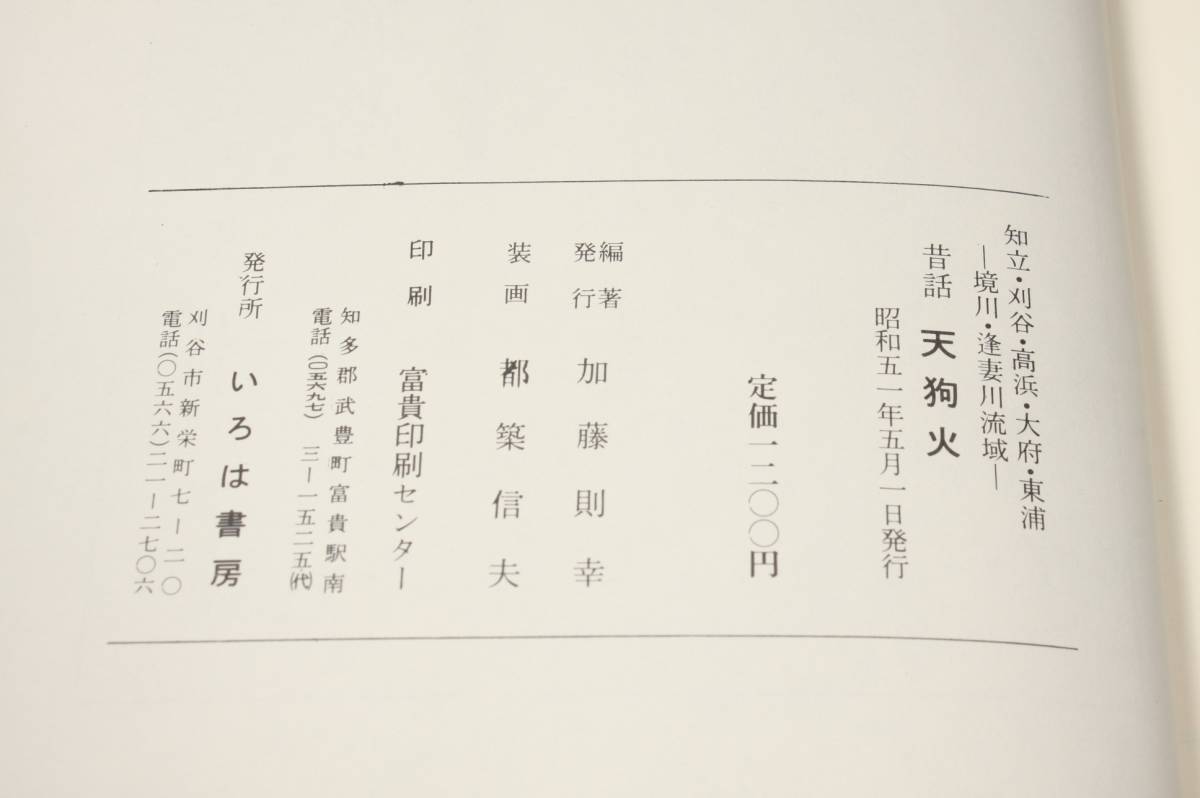 知立・刈谷・高浜・大府・東浦
―境川・逢妻川流域―
昔話 天狗火
昭和五一年五月一日発行
定価一二〇〇円
編著
発行 加藤則幸
装画 都築信夫
印刷 富貴印刷センター
知多郡武豊町富貴駅南
電話(〇五六九七) 三―一五二五(代)
発行所 いろは書房
刈谷市新栄町七―二〇
電話(〇五六六)二一―二七〇六